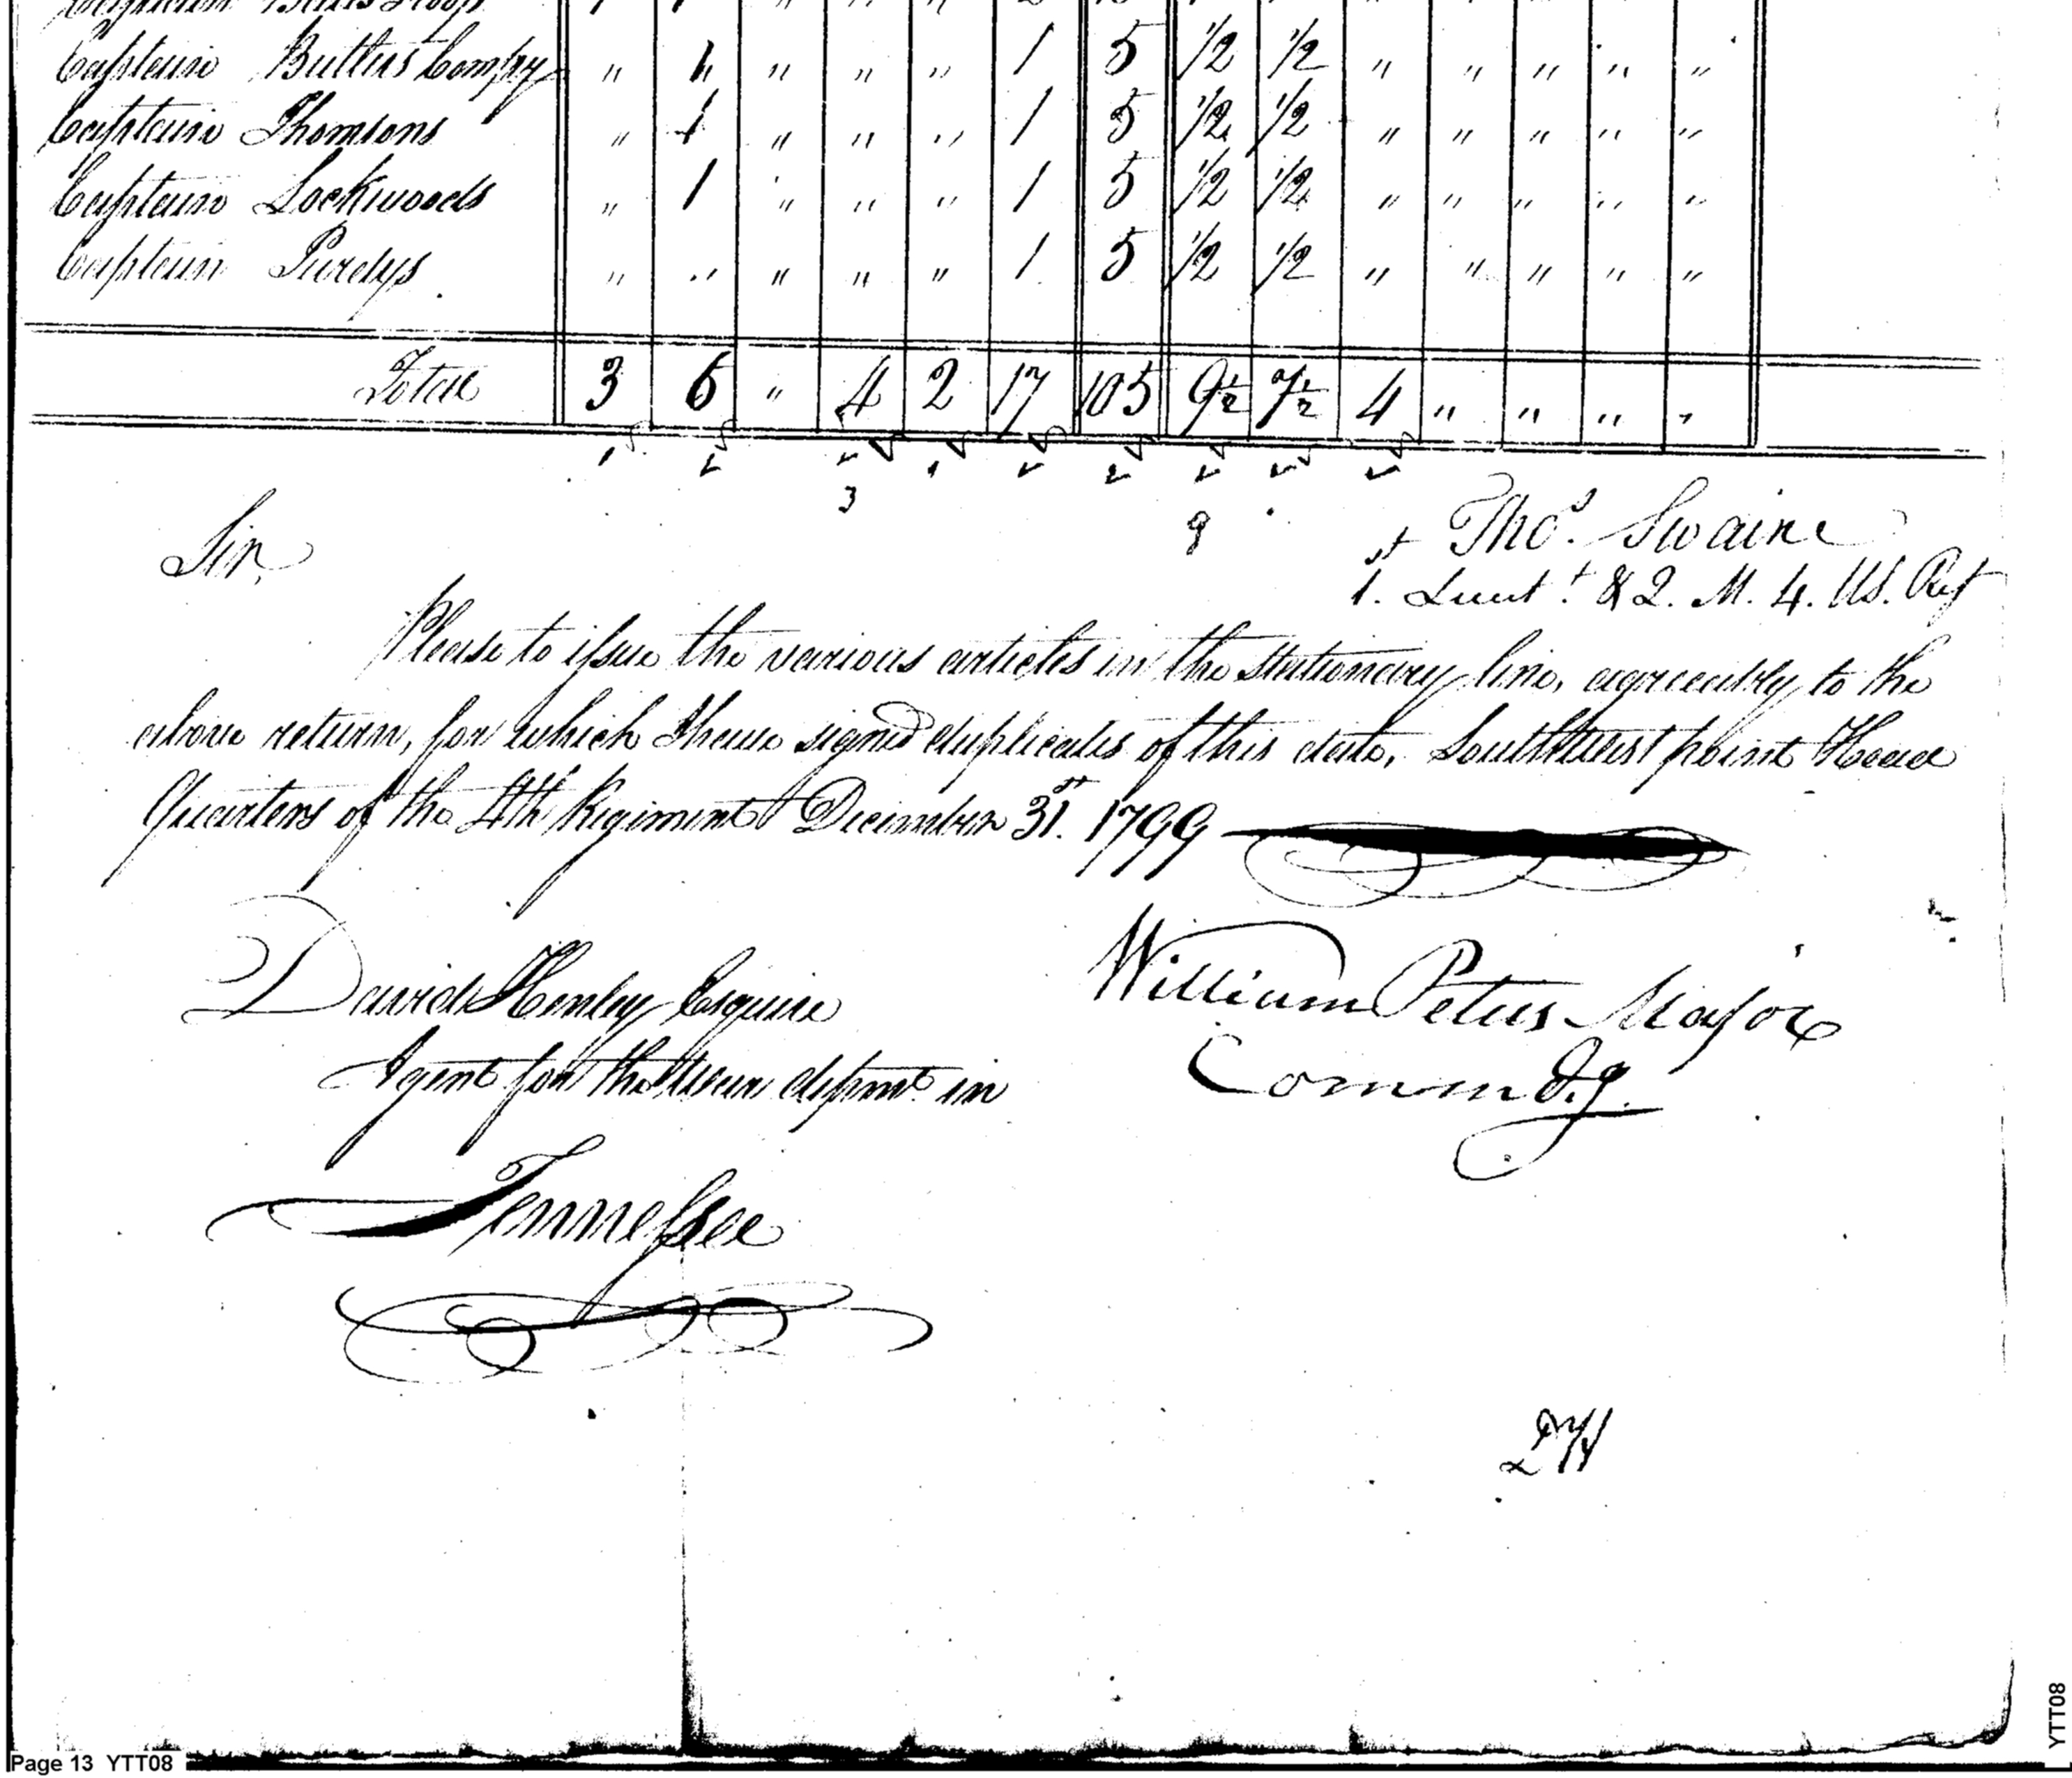 Captain Butlers Compy " 1 " " " 1 5 1/2 1/2 " " " " "
Captain Thomsons " 1 " " " 1 5 1/2 1/2 " " " " "
Captain Lockwoods " 1 " " " 1 5 1/2 1/2 " " " " "
Captain Purdys " " " " " 1 5 1/2 1/2 " " " " "
Total 3 6 " 4 2 17 105 9½ 7½ 4 " " " "
3
9
Thos. Swaine
1.st Lieut.t & Q. M. 4. US. Regt
Sir,
Please to issue the various articles in the stationary line, agreeably to the
above return, for which I have signed duplicates of this date, South West point Head
Quarters of the 4th Regiment December 31.st 1799
David Henley Esquire
Agent for the War depmt. in
Tennessee
William Peters Major
Commdg
274
Page 13 YTT08
YTT08